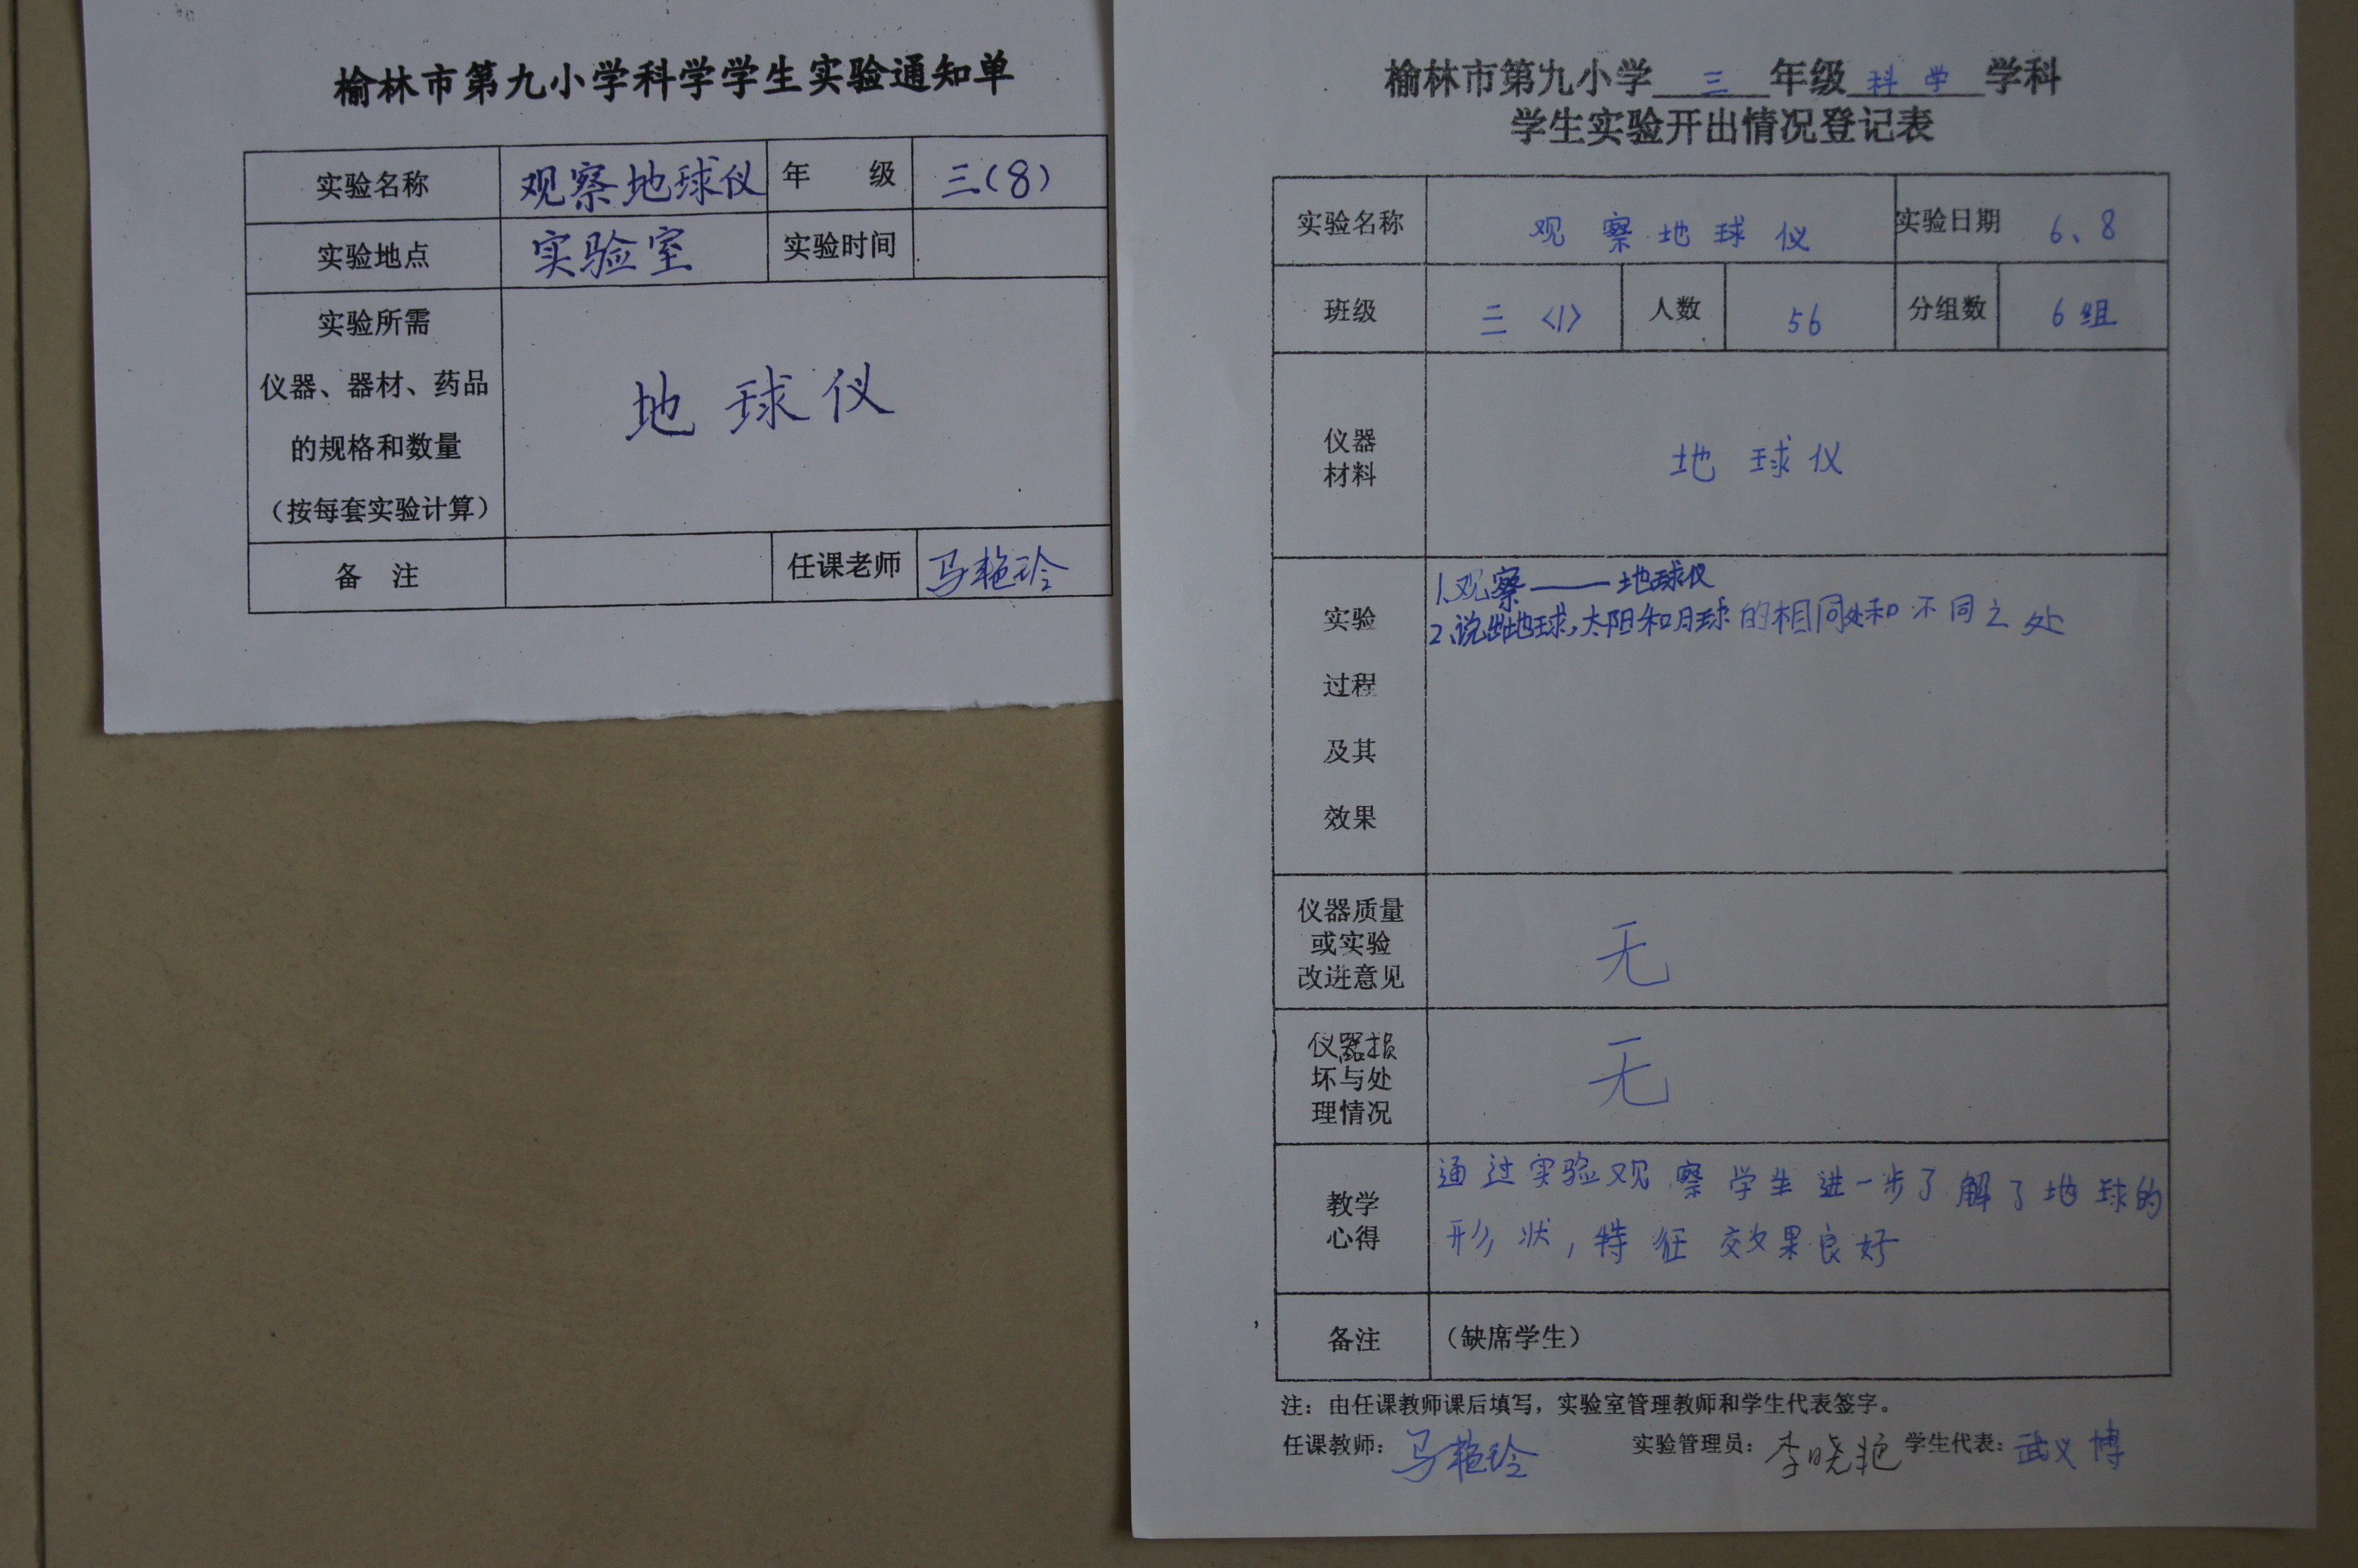 榆林市第九小学科学学生实验通知单
实验名称 观察地球仪 年 级 三(8)
实验地点 实验室 实验时间
实验所需
仪器、器材、药品
的规格和数量
（按每套实验计算）
地球仪
备 注 任课老师 马艳玲
榆林市第九小学 三 年级 科学 学科
学生实验开出情况登记表
实验名称 观察地球仪 实验日期 6、8
班级 三〈1〉 人数 56 分组数 6组
仪器
材料
地球仪
实验
过程
及其
效果
1.观察——地球仪
2、说出地球,太阳和月球的相同处和不同之处
仪器质量
或实验
改进意见
无
仪器损
坏与处
理情况
无
教学
心得
通过实验观察学生进一步了解了地球的
形状,特征效果良好
备注 （缺席学生）
注：由任课教师课后填写，实验室管理教师和学生代表签字。
任课教师：马艳玲 实验管理员：李晓艳 学生代表：武义博